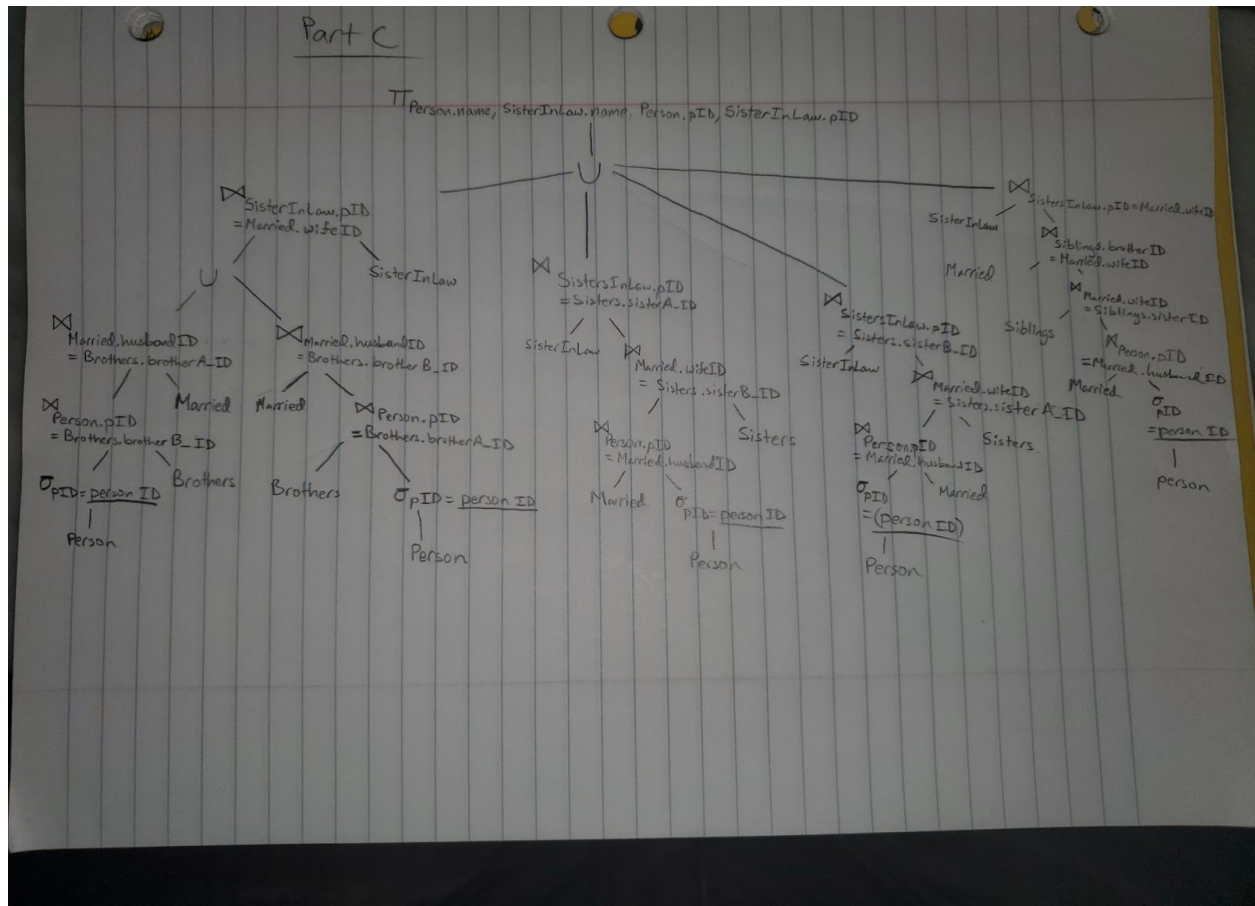 Part C
π Person.name, SisterInLaw.name, Person.pID, SisterInLaw.pID
∪
⋈ SisterInLaw.pID
= Married.wifeID
SisterInLaw
∪
⋈ Married.husbandID
= Brothers.brotherA_ID
Married
⋈ Person.pID
= Brothers.brotherB_ID
Brothers
σ pID = person ID
Person
⋈ Married.husbandID
= Brothers.brotherB_ID
Married
⋈ Person.pID
= Brothers.brotherA_ID
Brothers
σ pID = person ID
Person
⋈ SistersInLaw.pID
= Sisters.sisterA_ID
SisterInLaw
⋈ Married.wifeID
= Sisters.sisterB_ID
Sisters
⋈ Person.pID
= Married.husbandID
Married
σ pID = person ID
Person
⋈ SistersInLaw.pID
= Sisters.sisterB_ID
SisterInLaw
⋈ Married.wifeID
= Sisters.sisterA_ID
Sisters
⋈ Person.pID
= Married.husbandID
Married
σ pID
= (person ID)
Person
⋈ SistersInLaw.pID = Married.wifeID
SisterInLaw
⋈ Siblings.brotherID
= Married.wifeID
Married
⋈ Married.wifeID
= Siblings.sisterID
Siblings
⋈ Person.pID
= Married.husbandID
Married
σ pID
= person ID
person